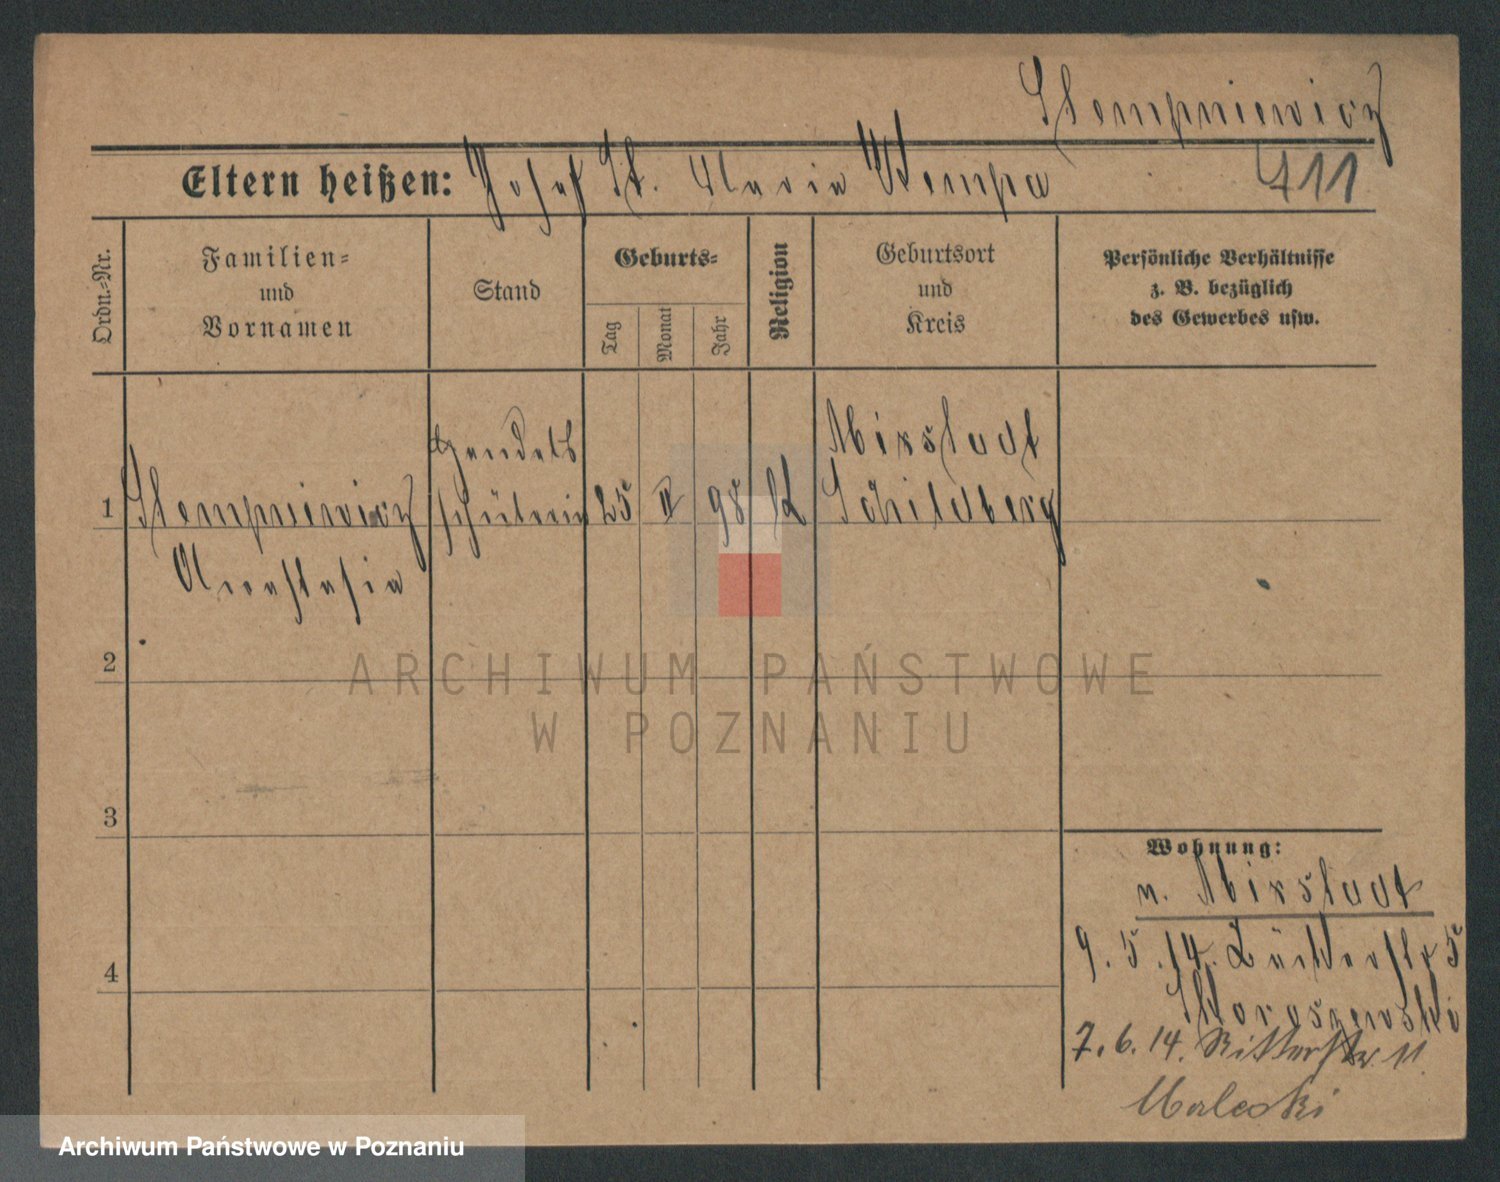 Stempniewicz
Eltern heißen: Josef St. Maria Wempa 411
Ordn.-Nr.
Familien-
und
Vornamen
Stand
Geburts-
Tag
Monat
Jahr
Religion
Geburtsort
und
Kreis
Persönliche Verhältnisse
z. B. bezüglich
des Gewerbes usw.
Handels Mixstadt
1 Stempniewicz schülerin 25 II 98 K Schildberg
Anastasia
2
3
Wohnung:
n. Mixstadt
9. 5. 14. Bäckerstr 5
4
Skoraszewski
7. 6. 14. Ritterstr. 11
Maleski
ARCHIWUM PAŃSTWOWE
W POZNANIU
Archiwum Państwowe w Poznaniu